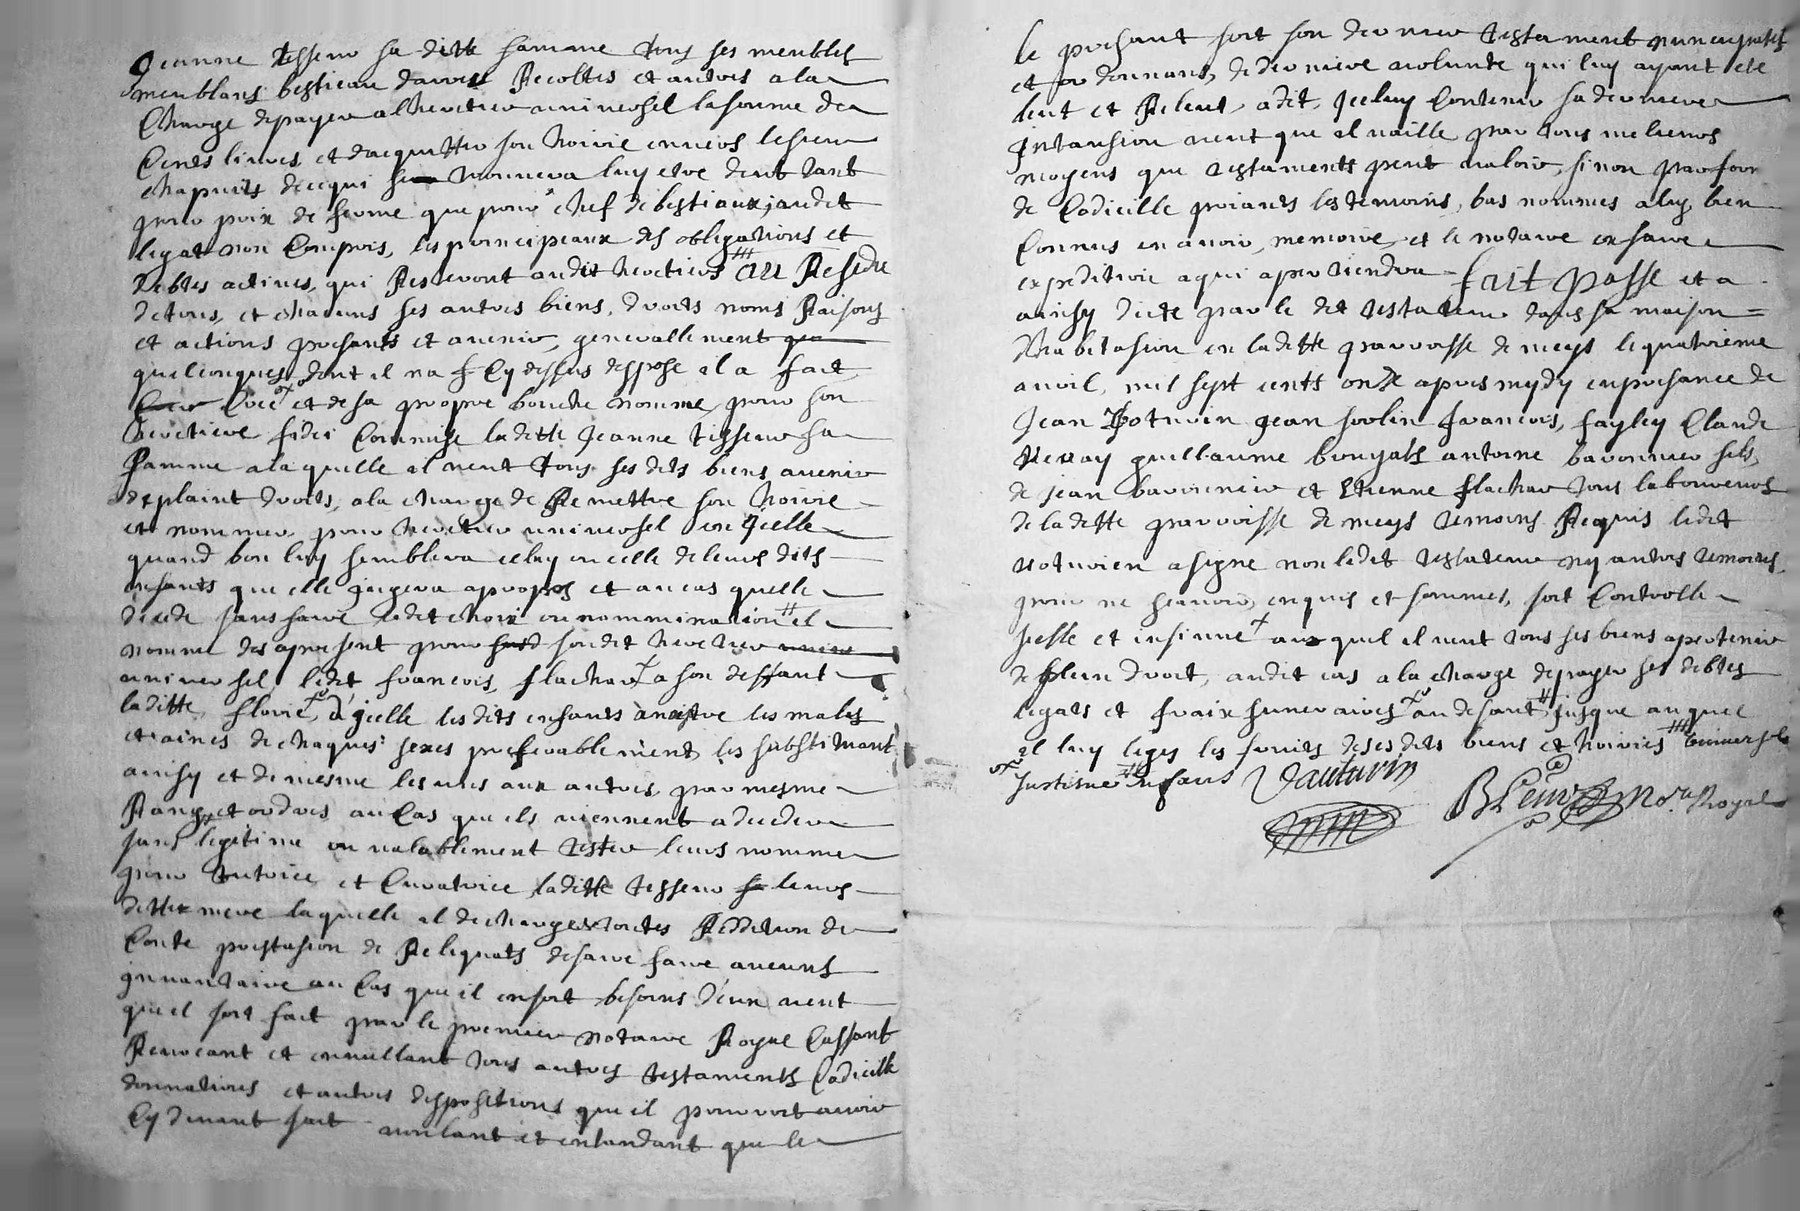 Jeanne tisseur sa ditte famme tous ses meubles
meublans bestieau danrés Recoltes et autres a la
Charge de payer a lheretier universel la somme de
Cents livres et dacquitter son hoirie envers le sieur
chapuits de ce qui se trouvera luy etre deub tant
pour prix de ferme que pour chef de bestiaux, audit
legat non Compris, les principeaux des obligations et
debtes actives, qui Resteront audit heretiers au Residu
de tous, et chacuns ses autres biens, droits noms Raisons
et actions presants et avenir, generallement
quelconques dont il na Cy dessus dispose il a fait
Crée et de sa propre bouche nomme pour son
heretiere fidei Commise laditte Jeanne tisseur sa
famme a la quelle il veut tous ses dits biens avenir
de plaint droits, a la charge de Remettre son hoirie
et nommer pour heretier universel on jcelle
quand bon luy semblera celuy ou celle de leurs dits
enfants que elle jugera apropos et au cas quelle
decede sans faire ledit choix ou nommination il
nomme des apresent pour son dit heretier
universel ledit francois flachar a son deffaut
laditte florie, a jcelle les dits enfants anaistre les males
et aines de chaques sexes preferablement les substituant
ainsy et de mesme les unes aux autres par mesme
Rang et ordres au Cas que ils viennent a deceder
sans legitime ou valablement tester leurs nomme
pour tutrice et Curatrice laditte tisseur leurs
ditte mere laquelle il decharge toutes Reddition de
Conte prestasion de Reliquats de faire faire aucuns
jnvantaire au Cas que il en soit besoins d'un veut
quil soit fait par le premier notaire Royal Cassant
Revocant et annullant tous autres testaments Codicille
donnations et autres dispositions que il pourroit avoir
Cy devant fait voulant et entandant que le
le presant soit son dernier testament nuncupatif
et ordonnans, de derniere volunte qui luy ayant ete
leut et Releut a dit, jceluy Contenir sa derniere
jntansion veut que il vaille par tous meliures
moyens que testaments peut valoir, si non par forme
de Codicille priants les temoins, bas nommes a luy, bien
Connus en avoir, memoire, et le notaire en faire
expeditioin a qui apartiendra fait passe et a
ainsy dicte par le dit testateur dans sa maison
dhabitasion en laditte parroisse de meys le quatrieme
avril, mil sept cents onze apres mydy en presance de
Jean Poturin jean soulin francois, fayley Claude
Verray guillaume bruyats antoine baronnier fils,
de jean baronnier et Etienne flachar tous laboureurs
de laditte parroisse de meys temoins Requis ledit
voturien a signe non ledit testateur ny autres temoins
pour ne scavoir, enquis et sommes, soit Controlle
scelle et insinue auquel il veut tous ses biens apertenir
de plein droit, audit cas a la charge de payer ses debtes
legats et fraix funeraires au defaut jusque auquel
il luy legue les fruits de ses dits biens et hoiries universels
jnstitue enfans Vauturin
Not. Royal